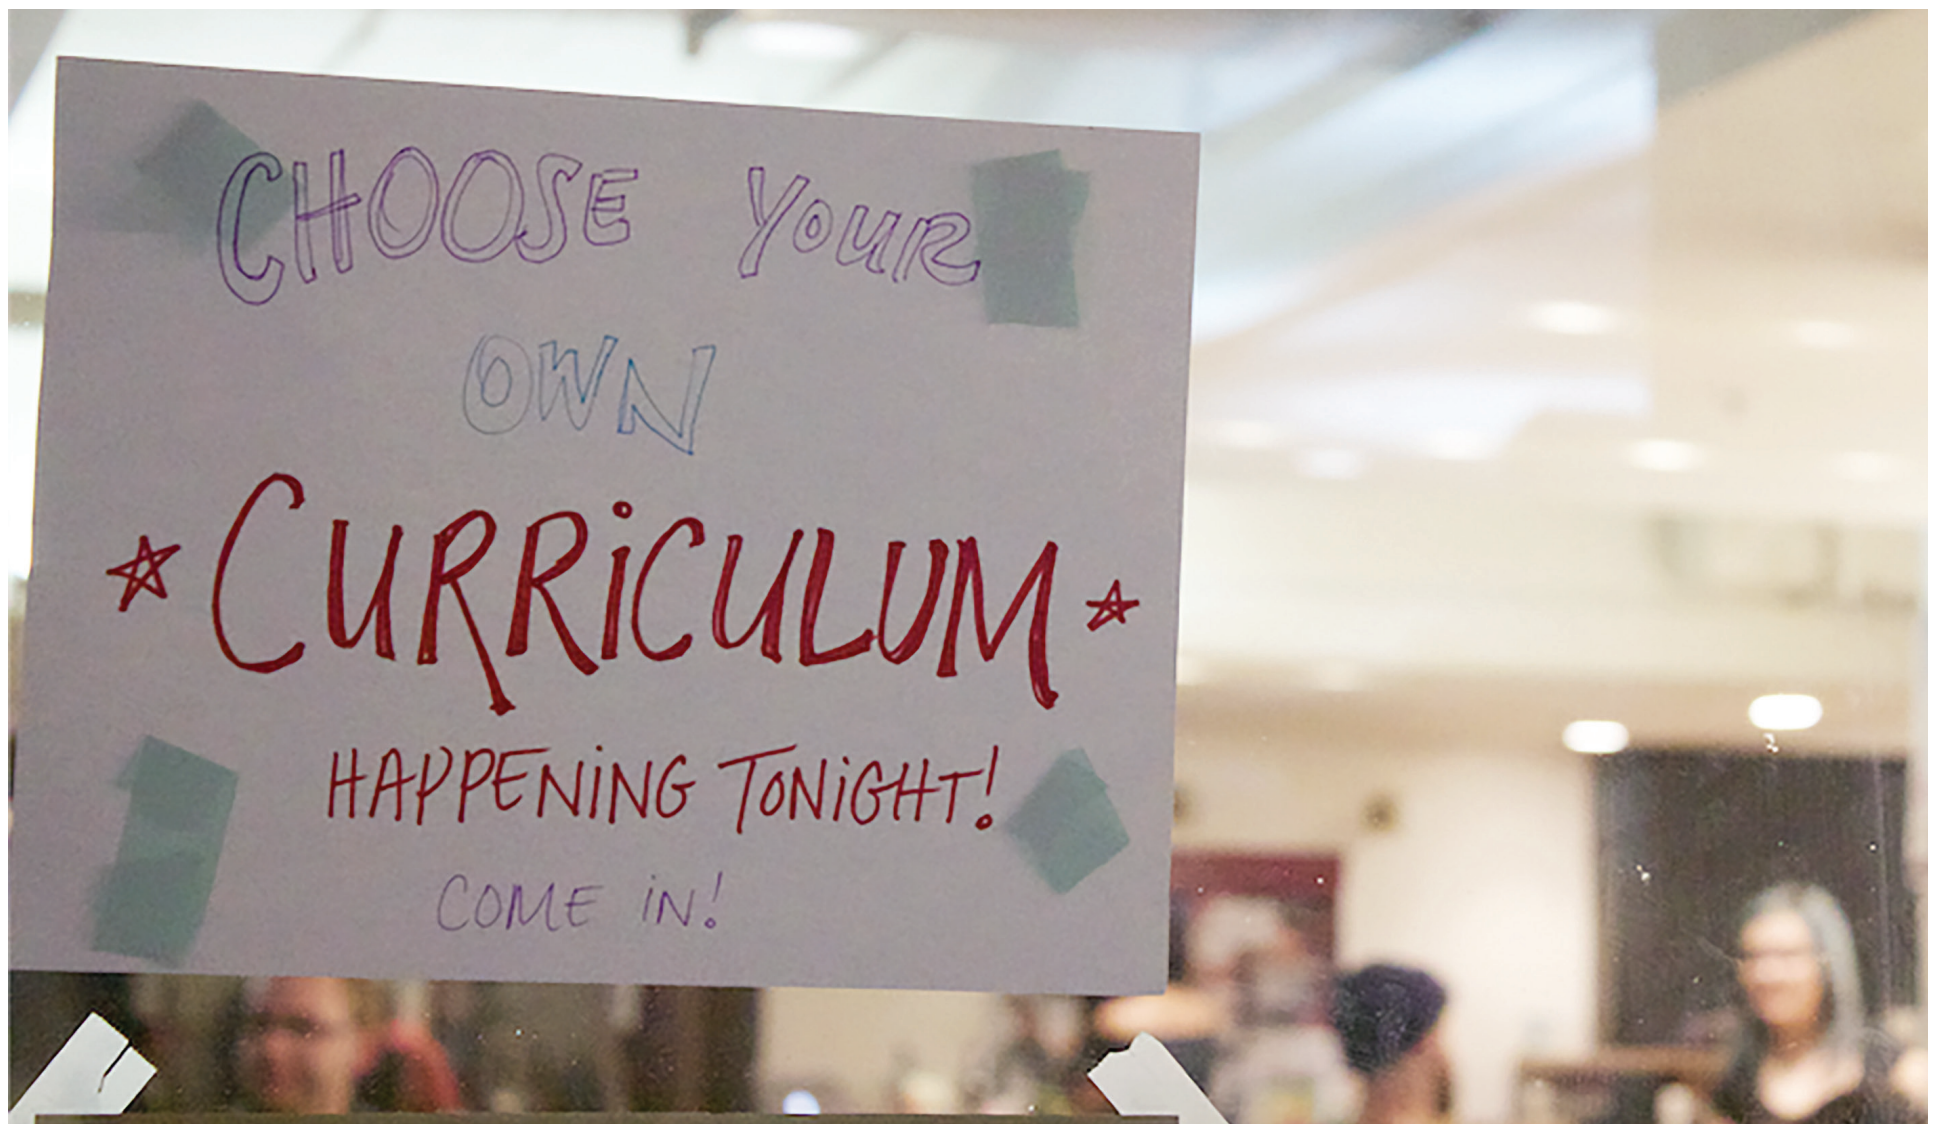 CHOOSE YOUR
OWN
CURRiCULUM
HAPPENiNG TONiGHT!
COME iN!